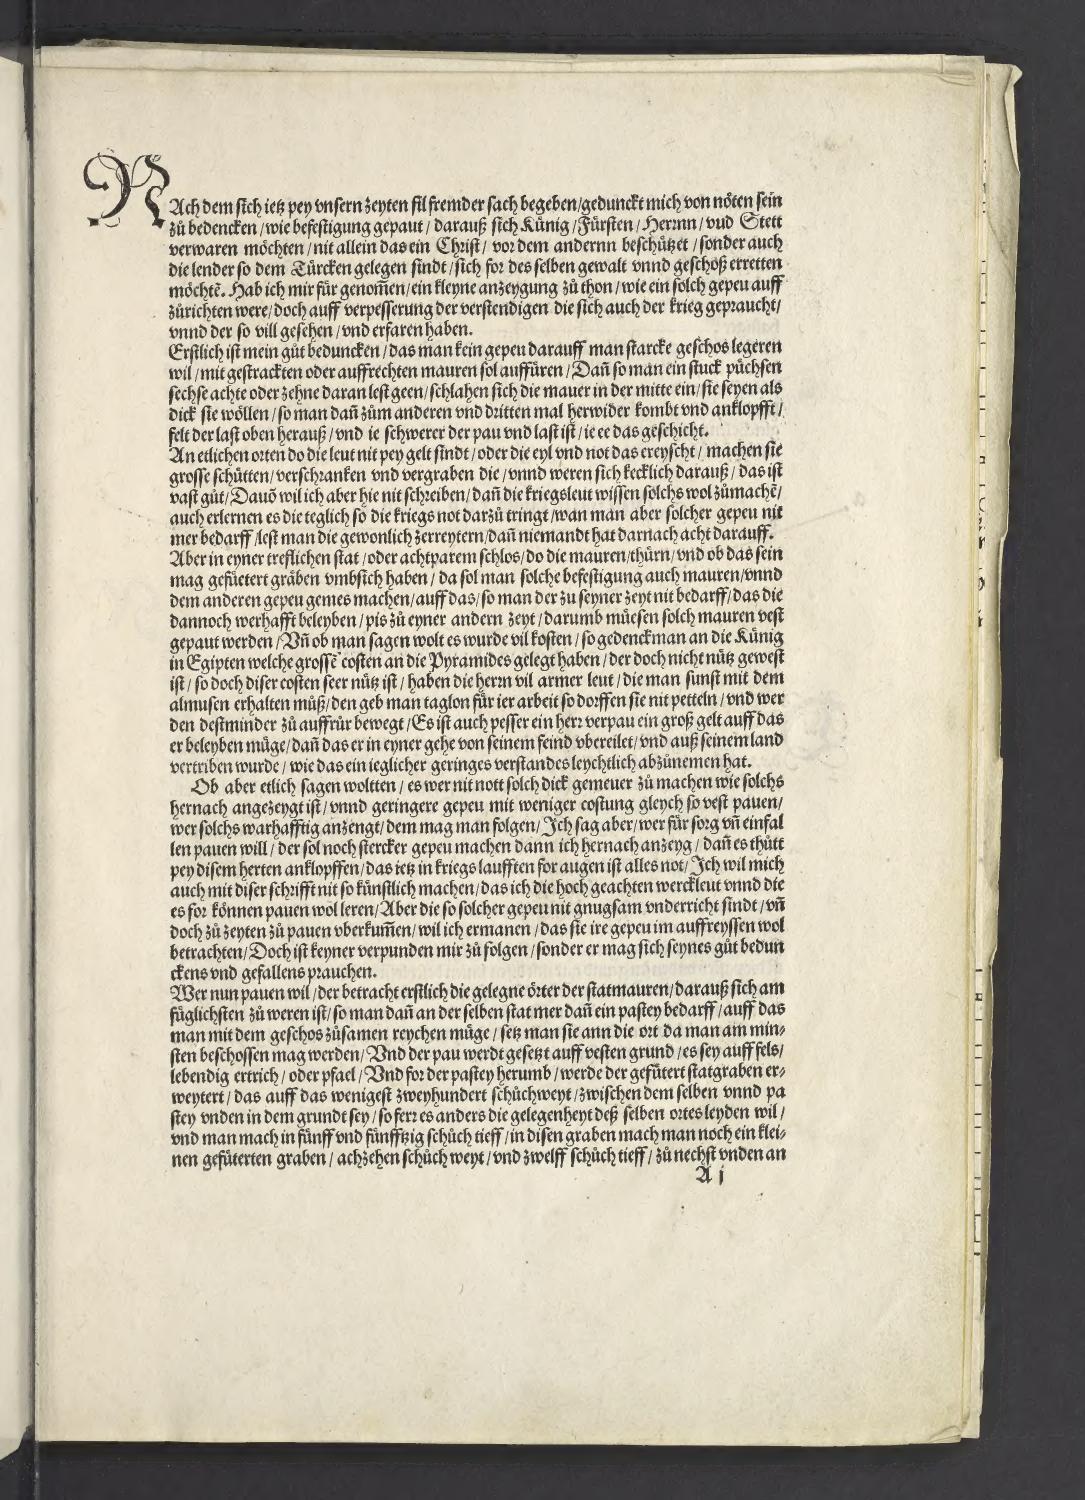 NAch dem sich ietz pey vnsern zeyten fil fremder sach begeben/gedunckt mich von nöten sein
zů bedencken/wie befestigung gepaut/darauß sich Künig/Fürsten/Herrnn/vnd Stett
verwaren möchten/nit allein das ein Christ/vor dem andernn beschützet/sonder auch
die lender so dem Türcken gelegen sindt/sich for des selben gewalt vnnd geschoß erretten
möchtẽ. Hab ich mir für genom̃en/ein kleyne anzeygung zů thon/wie ein solch gepeu auff
zůrichten were/doch auff verpesserung der verstendigen die sich auch der krieg gepraucht/
vnnd der so vill gesehen/vnd erfaren haben.
Erstlich ist mein gůt beduncken/das man kein gepeu darauff man starcke geschos legeren
wil/mit gestrackten oder auffrechten mauren sol auffüren/Dañ so man ein stuck püchsen
sechse achte oder zehne daran lest geen/schlahen sich die mauer in der mitte ein/sie seyen als
dick sie wöllen/so man dañ zům anderen vnd dritten mal herwider kombt vnd anklopfft/
felt der last oben herauß/vnd ie schwerer der pau vnd last ist/ie ee das geschicht.
An etlichen orten do die leut nit pey gelt sindt/oder die eyl vnd not das ereyscht/machen sie
grosse schütten/verschrancken vnd vergraben die/vnnd weren sich kecklich darauß/das ist
vast gůt/Dauõ wil ich aber hie nit schreiben/dañ die kriegsleut wissen solchs wol zůmachẽ/
auch erlernen es die teglich so die kriegs not darzů tringt/wan man aber solcher gepeu nit
mer bedarff/lest man die gewonlich zerreytern/dañ niemandt hat darnach acht darauff.
Aber in eyner treflichen stat/oder achtparem schlos/do die mauren/thürn/vnd ob das sein
mag gefüetert gräben vmbsich haben/da sol man solche befestigung auch mauren/vnnd
dem anderen gepeu gemes machen/auff das/so man der zu seyner zeyt nit bedarff/das die
dannoch werhafft beleyben/pis zů eyner andern zeyt/darumb müesen solch mauren vest
gepaut werden/Vñ ob man sagen wolt es wurde vil kosten/so gedenckman an die Künig
in Egipten welche grossẽ costen an die Pyramides gelegt haben/der doch nicht nütz gewest
ist/so doch diser costen seer nütz ist/haben die herrn vil armer leut/die man sunst mit dem
almusen erhalten můß/den geb man taglon für ier arbeit so dorffen sie nit petteln/vnd wer
den destminder zů auffrůr bewegt/Es ist auch pesser ein herr verpau ein groß gelt auff das
er beleyben müge/dañ das er in eyner gehe von seinem feind vbereilet/vnd auß seinem land
vertriben wurde/wie das ein ieglicher geringes verstandes leychtlich abzůnemen hat.
Ob aber etlich sagen woltten/es wer nit nott solch dick gemeuer zů machen wie solchs
hernach angezeygt ist/vnnd geringere gepeu mit weniger costung gleych so vest pauen/
wer solchs warhafftig anzengt/dem mag man folgen/Ich sag aber/wer für sorg vñ einfal
len pauen will/der sol noch stercker gepeu machen dann ich hernach anzeyg/dañ es thůtt
pey disem herten anklopffen/das ietz in kriegs laufften for augen ist alles not/Ich wil mich
auch mit diser schrifft nit so künstlich machen/das ich die hoch geachten werckleut vnnd die
es for können pauen wol leren/Aber die so solcher gepeu nit gnugsam vnderricht sindt/vñ
doch zů zeyten zů pauen vberkum̃en/wil ich ermanen/das sie ire gepeu im auffreyssen wol
betrachten/Doch ist keyner verpunden mir zů folgen/sonder er mag sich seynes gůt bedun
ckens vnd gefallens prauchen.
Wer nun pauen wil/der betracht erstlich die gelegne örter der statmauren/darauß sich am
füglichsten zů weren ist/so man dañ an der selben stat mer dañ ein pastey bedarff/auff das
man mit dem geschos zůsamen reychen müge/setz man sie ann die ort da man am min⸗
sten beschossen mag werden/Vnd der pau werdt gesetzt auff vesten grund/es sey auff fels/
lebendig ertrich/oder pfael/Vnd for der pastey herumb/werde der gefütert statgraben er⸗
weytert/das auff das wenigest zweyhundert schůchweyt/zwischen dem selben vnnd pa
stey vnden in dem grundt sey/so ferr es anders die gelegenheyt deß selben ortes leyden wil/
vnd man mach in fünff vnd fünfftzig schůch tieff/in disen graben mach man noch ein klei⸗
nen gefüterten graben/achzehen schůch weyt/vnd zwelff schůch tieff/zů nechst vnden an
A j